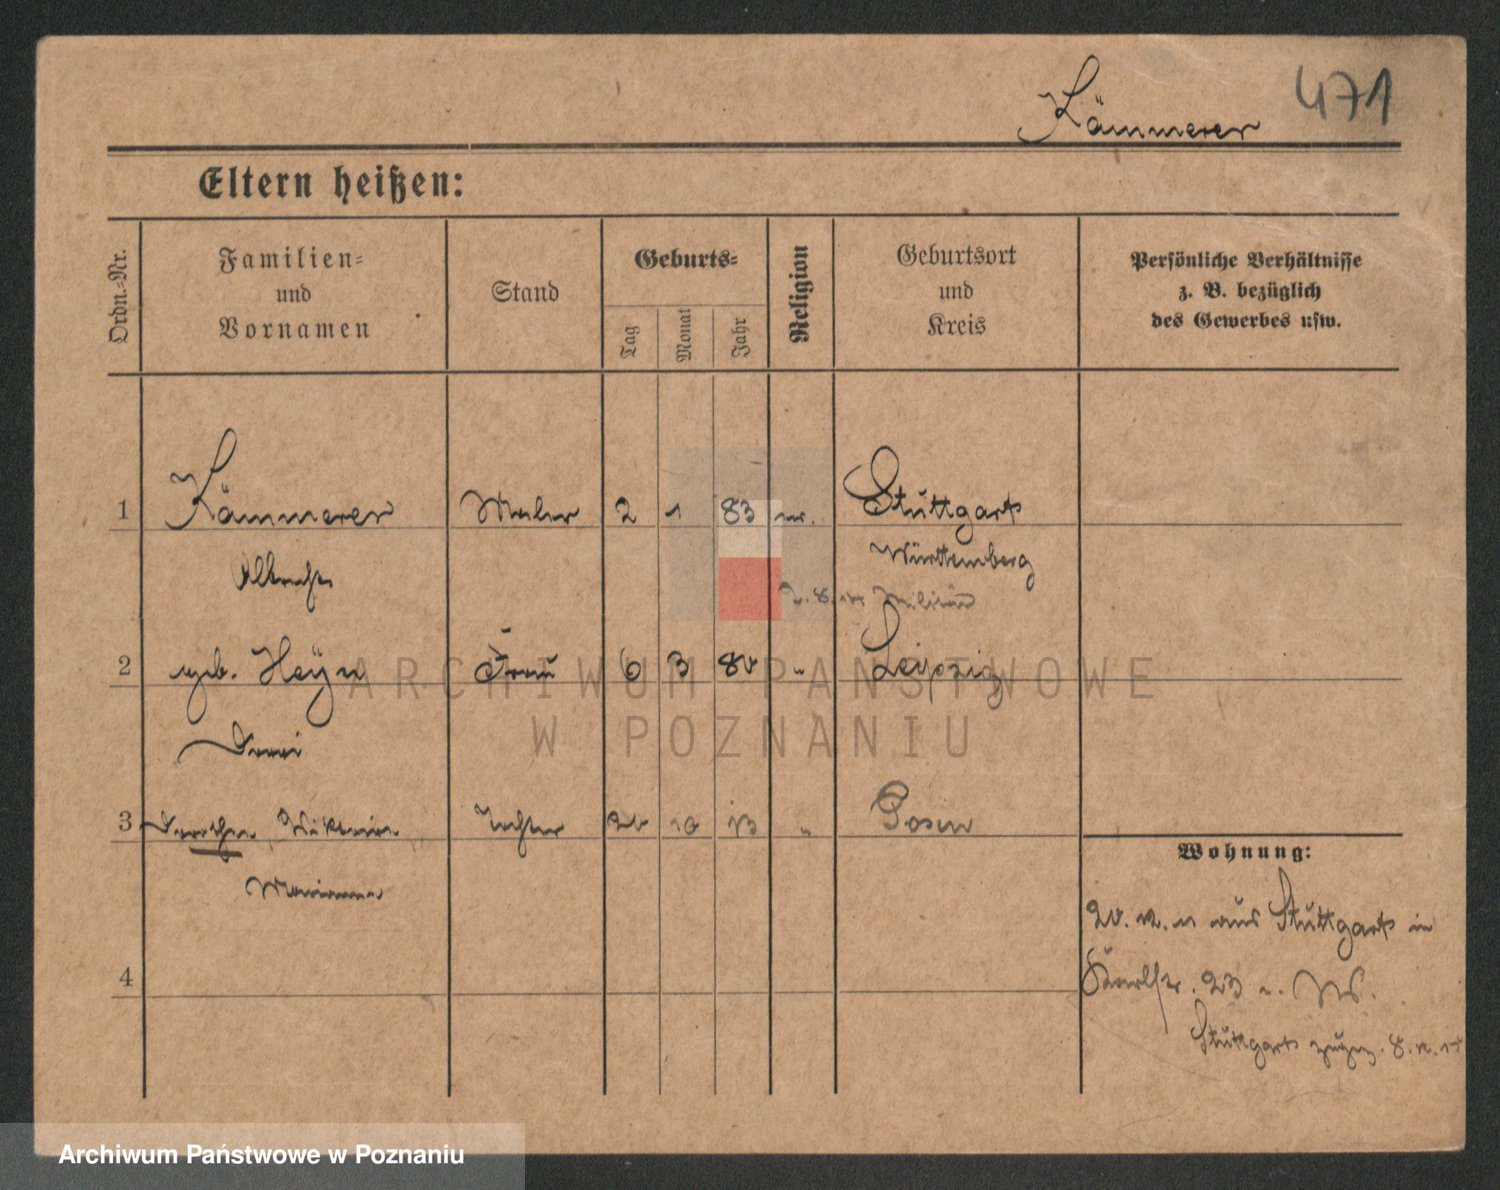 Kämmerer 471
Eltern heißen:
Ordn.-Nr.
Familien-
und
Vornamen
Stand
Geburts-
Tag
Monat
Jahr
Religion
Geburtsort
und
Kreis
Persönliche Verhältnisse
z. B. bezüglich
des Gewerbes usw.
1 Kämmerer Maler 2 1 83 ev. Stuttgart
Albrecht Württemberg
Militär
2 geb. Heyn Frau 6 3 80 " Leipzig
3 Tochter 10 13 " Posen
Marianne
Wohnung:
aus Stuttgart in
Karlstr. 23
Stuttgart
4
ARCHIWUM PAŃSTWOWE
W POZNANIU
Archiwum Państwowe w Poznaniu